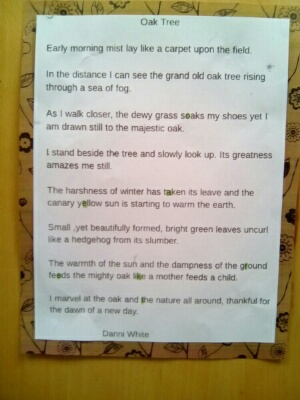 Oak Tree
Early morning mist lay like a carpet upon the field.
In the distance I can see the grand old oak tree rising
through a sea of fog.
As I walk closer, the dewy grass soaks my shoes yet I
am drawn still to the majestic oak.
I stand beside the tree and slowly look up. Its greatness
amazes me still.
The harshness of winter has taken its leave and the
canary yellow sun is starting to warm the earth.
Small ,yet beautifully formed, bright green leaves uncurl
like a hedgehog from its slumber.
The warmth of the sun and the dampness of the ground
feeds the mighty oak like a mother feeds a child.
I marvel at the oak and the nature all around, thankful for
the dawn of a new day.
Danni White